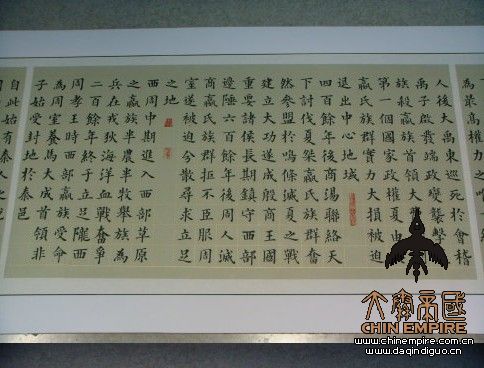 為最高權力之
人後大禹東巡死於會稽
禹子啟發端政變襲擊
族殺嬴族首領大
第一個國家政權夏
嬴氏族群實力大損被迫
退出中心地域
四百餘年後商湯聯絡天
下討伐夏桀嬴氏族群奮
然參盟於鳴條滅夏之戰
建立大功遂成殷商王國
重要諸侯長期鎮守西部
邊陲六百餘年後周人滅
商嬴氏族群拒不臣服周
室遂被迫分散尋求立足
之地
西周中期進入西部草原
之嬴族半農半牧舉族為
兵在戎狄海洋血戰奮爭
二百餘年終于立足隴西
周孝王時西部嬴族受命
為周室養馬大成首領非
子始受封地於秦邑
自此始有秦人之說
大秦帝國
CHIN EMPIRE
www.chinempire.com.cn
www.daqindiguo.cn